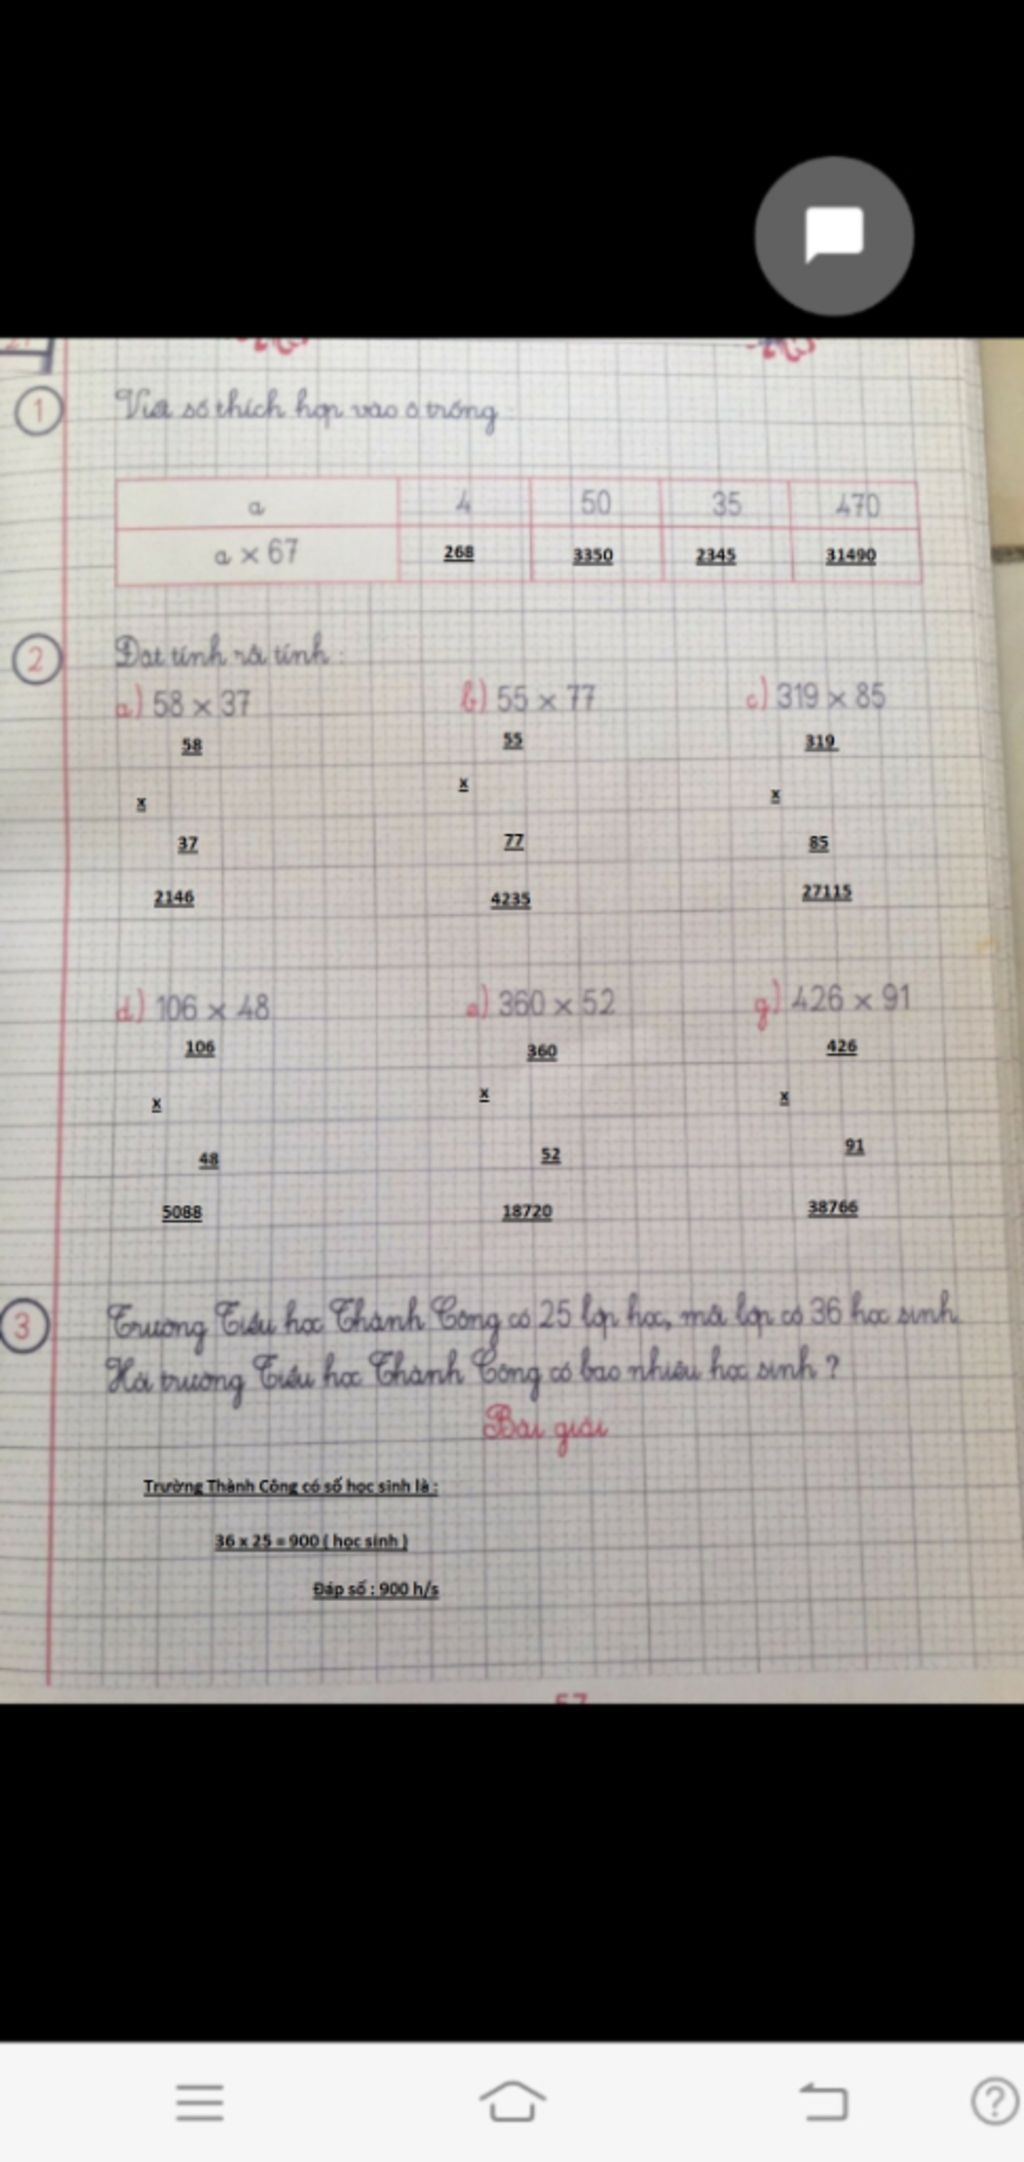 1 Viết số thích hợp vào ô trống:
a 4 50 35 470
a × 67 268 3350 2345 31490
2 Đặt tính rồi tính:
a) 58 × 37 b) 55 × 77 c) 319 × 85
58 55 319
x x x
37 77 85
2146 4235 27115
d) 106 × 48 e) 360 × 52 g) 426 × 91
106 360 426
x x x
48 52 91
5088 18720 38766
3 Trường Tiểu học Thành Công có 25 lớp học, mỗi lớp có 36 học sinh.
Hỏi trường Tiểu học Thành Công có bao nhiêu học sinh?
Bài giải
Trường Thành Công có số học sinh là :
36 x 25 = 900 ( học sinh )
Đáp số : 900 h/s
57